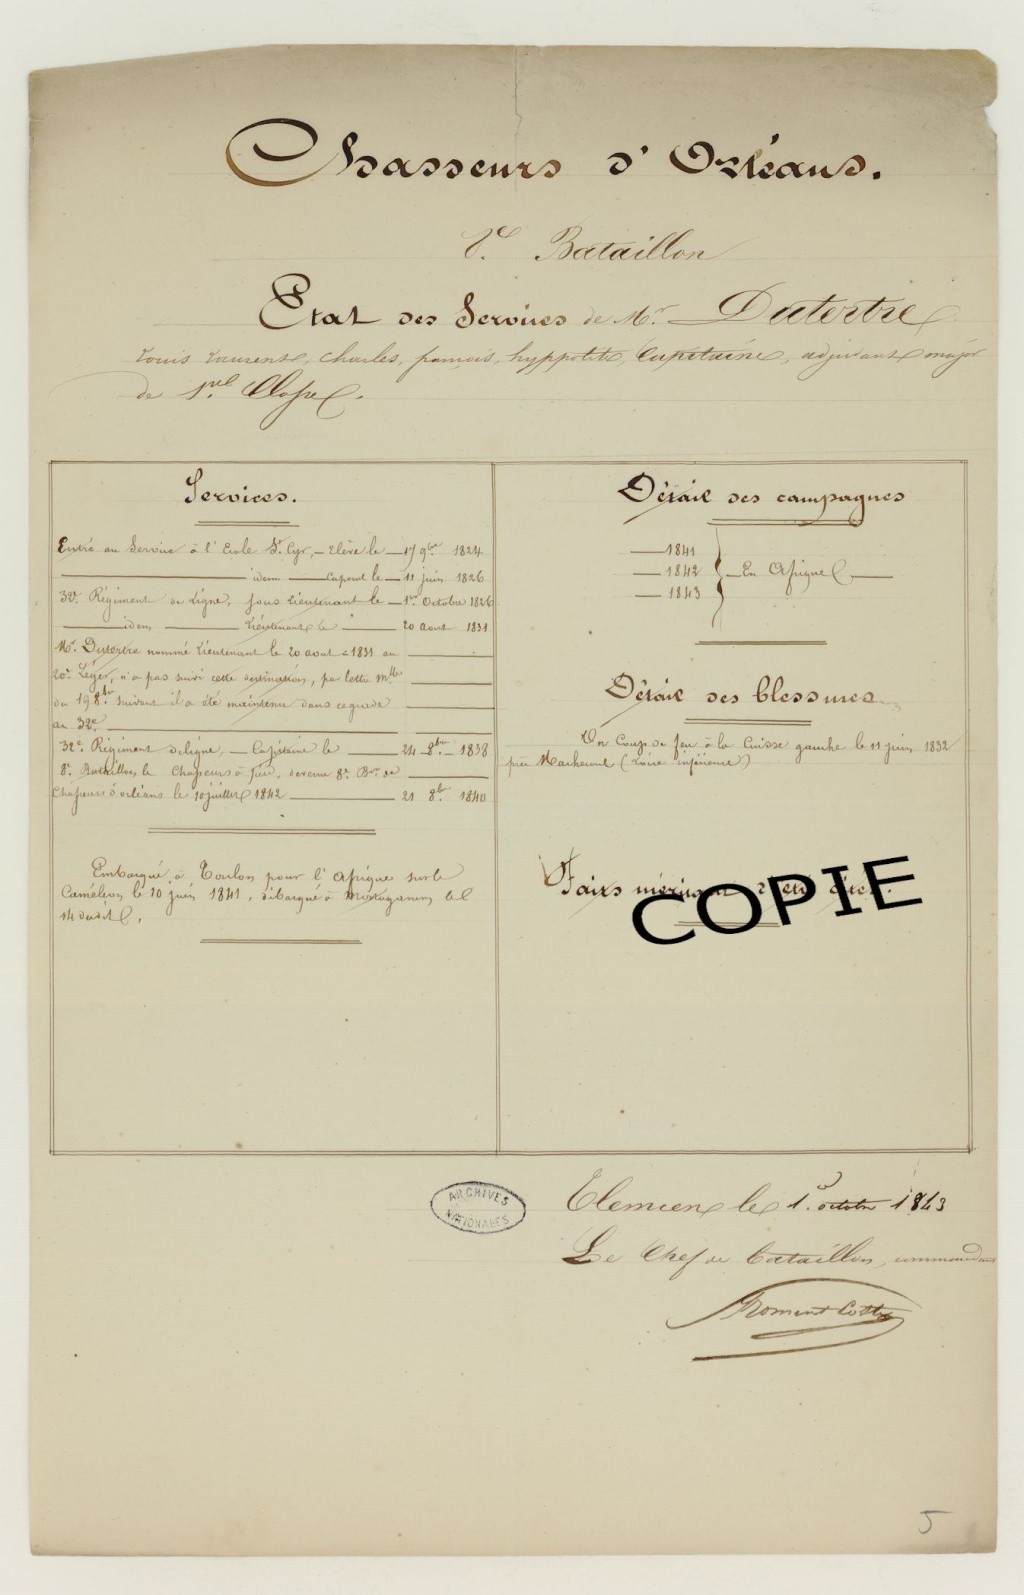 Chasseurs d'Orléans.
8e. Bataillon
Etat des Services de Mr. Dutertre
Louis Laurent, Charles, françois, hyppolite, Capitaine, adjudant major
de 1re. Classe.
Services.
Entré au Service à l'Ecole St. Cyr, - Elève le - 17 9bre 1824
idem Caporal le - 11 juin 1826
32e. Régiment de Ligne, sous Lieutenant le - 1er Octobre 1826
idem Lieutenant le 20 aout 1831
Mr. Dutertre nommé Lieutenant le 20 aout 1831 au
20e Léger, n'a pas suivi cette destination, par lettre mlle
du 19 8bre suivant il a été maintenu dans ce grade
au 32e.
32e. Régiment de ligne, - Capitaine le 24 8bre 1838
8e. Bataillon de Chasseurs à pied, devenu 8e. Bon de
Chasseurs d'orléans le 10 juillet 1842 21 8bre 1840
Embarqué à Toulon pour l'Afrique sur le
Caméléon le 10 juin 1841, débarqué à Mostaganem le
14 dudit.
Détail des campagnes
1841
1842 En Afrique
1843
Détail des blessures
Un Coup de feu à la Cuisse gauche le 11 juin 1832
près Machecoul (Loire inférieure)
Faits méritant d'être cités.
COPIE
ARCHIVES
NATIONALES
Tlemcen le 1er octobre 1843
Le Chef de bataillon, commandant
5